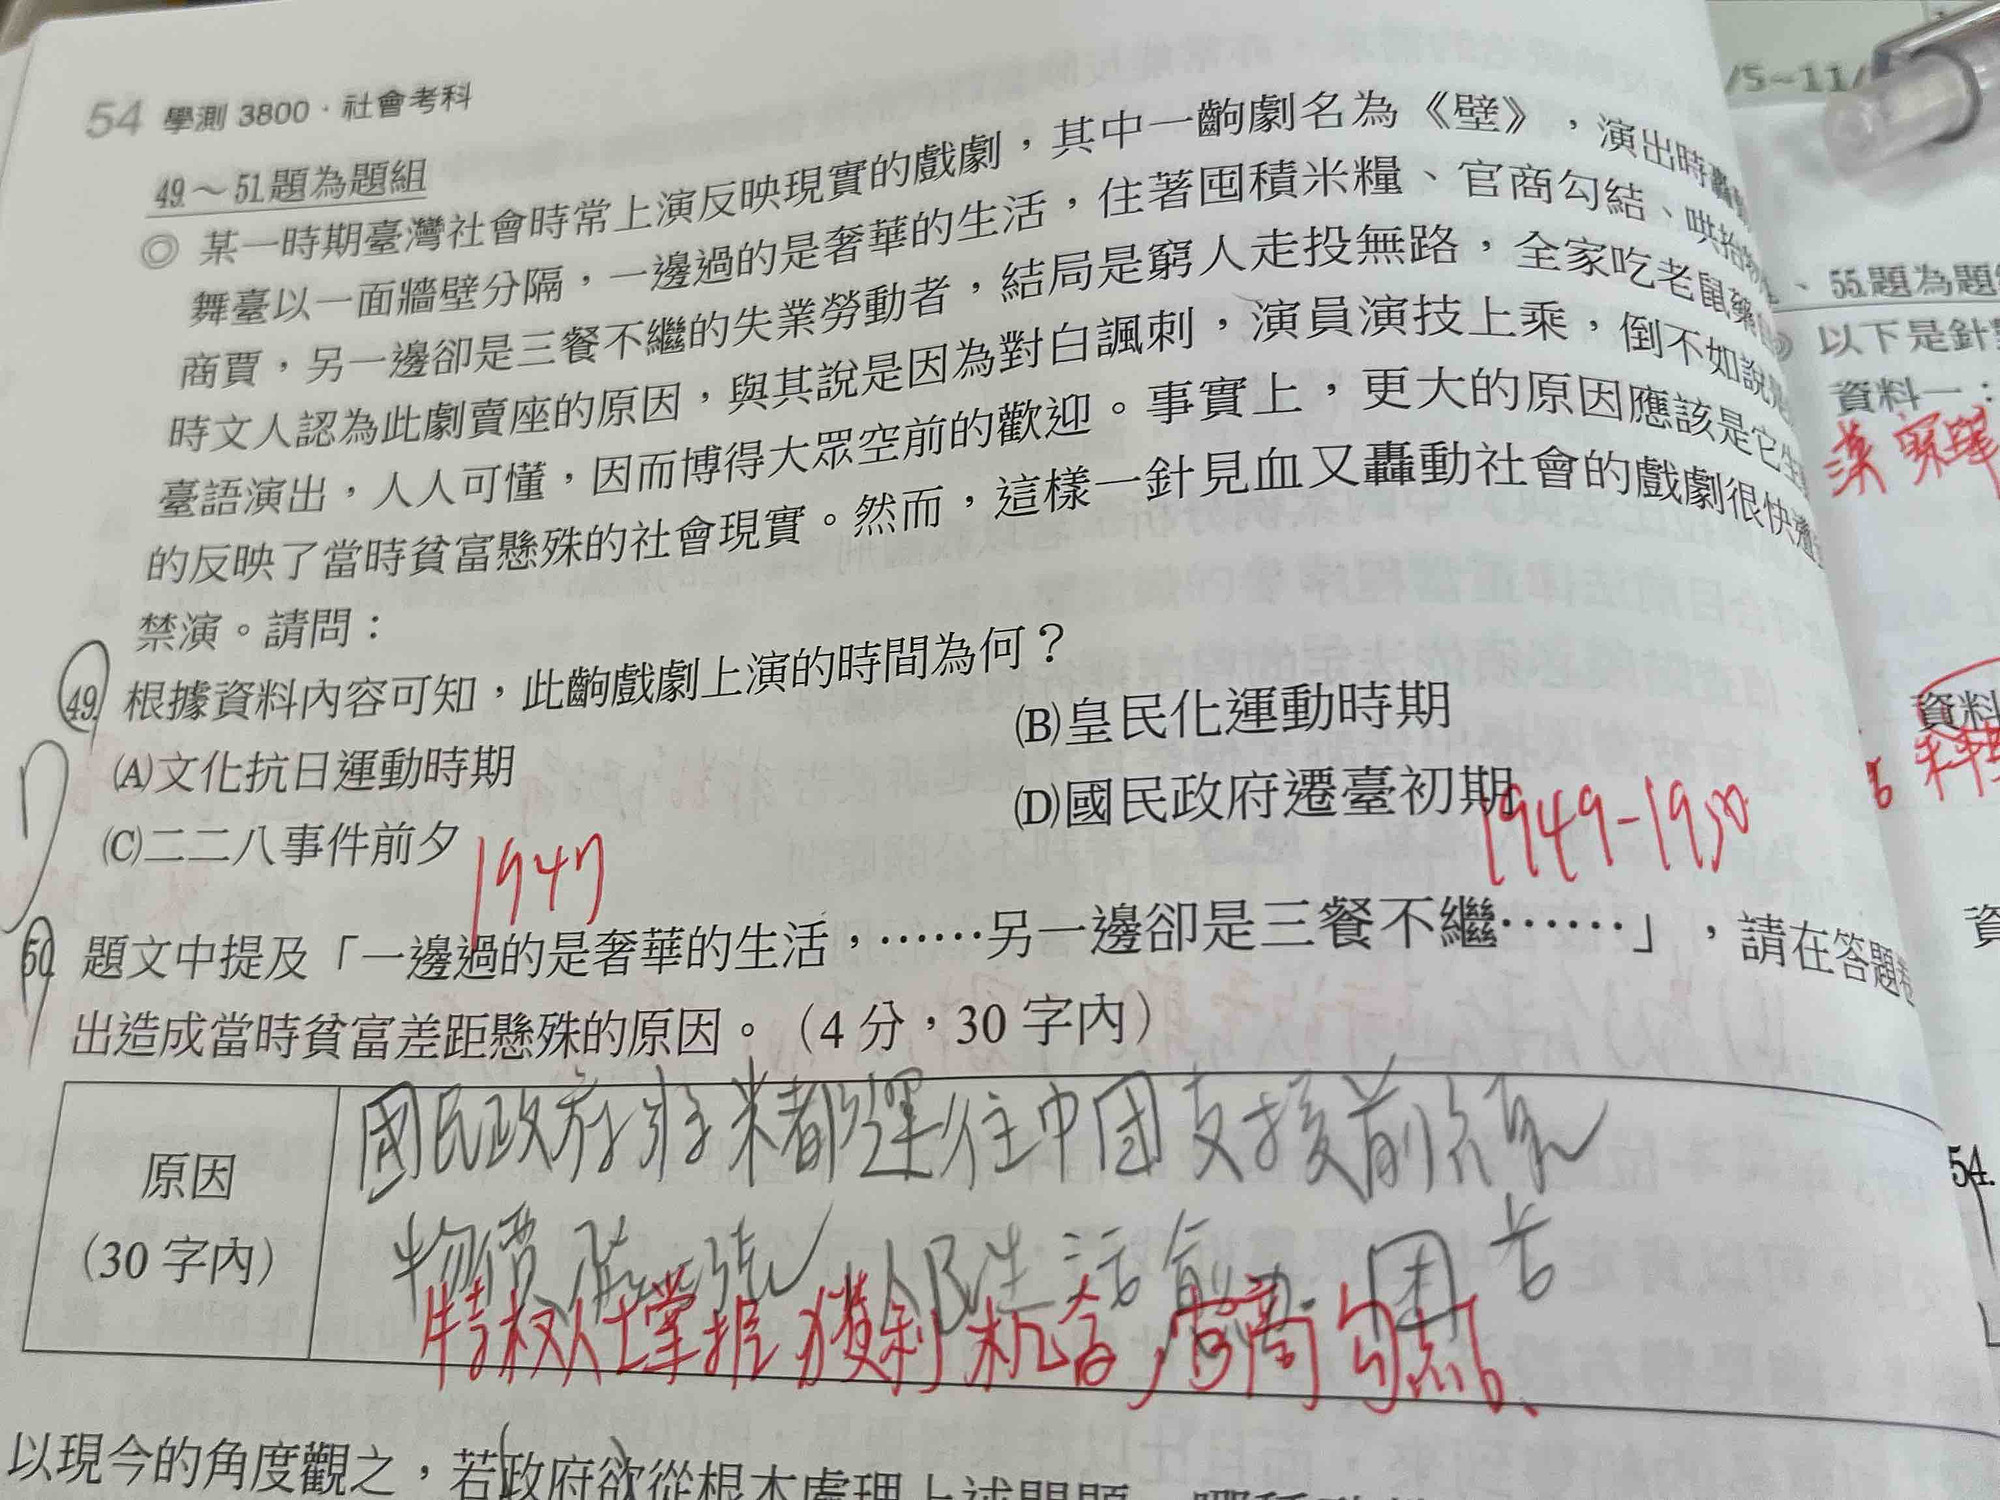 54 學測 3800．社會考科
/5~11/
49.～51.題為題組
◎ 某一時期臺灣社會時常上演反映現實的戲劇，其中一齣劇名為《壁》，演出時
舞臺以一面牆壁分隔，一邊過的是奢華的生活，住著囤積米糧、官商勾結、哄抬物
商賈，另一邊卻是三餐不繼的失業勞動者，結局是窮人走投無路，全家吃老鼠藥
時文人認為此劇賣座的原因，與其說是因為對白諷刺，演員演技上乘，倒不如說是
臺語演出，人人可懂，因而博得大眾空前的歡迎。事實上，更大的原因應該是它生
的反映了當時貧富懸殊的社會現實。然而，這樣一針見血又轟動社會的戲劇很快遭
禁演。請問：
49. 根據資料內容可知，此齣戲劇上演的時間為何？
(A)文化抗日運動時期 (B)皇民化運動時期
(C)二二八事件前夕 1947 (D)國民政府遷臺初期 1949-1950
50. 題文中提及「一邊過的是奢華的生活，……另一邊卻是三餐不繼……」，請在答題卷
出造成當時貧富差距懸殊的原因。（4 分，30 字內）
原因
（30 字內）
國民政府將米都運往中国支援前線
物價飛 生活 困苦
特权人士掌握獲利机会，官商勾結、
以現今的角度觀之，若政府欲從根本處理上述問題
、55.題為題
以下是針
資料一：
漢
資料
資
54.